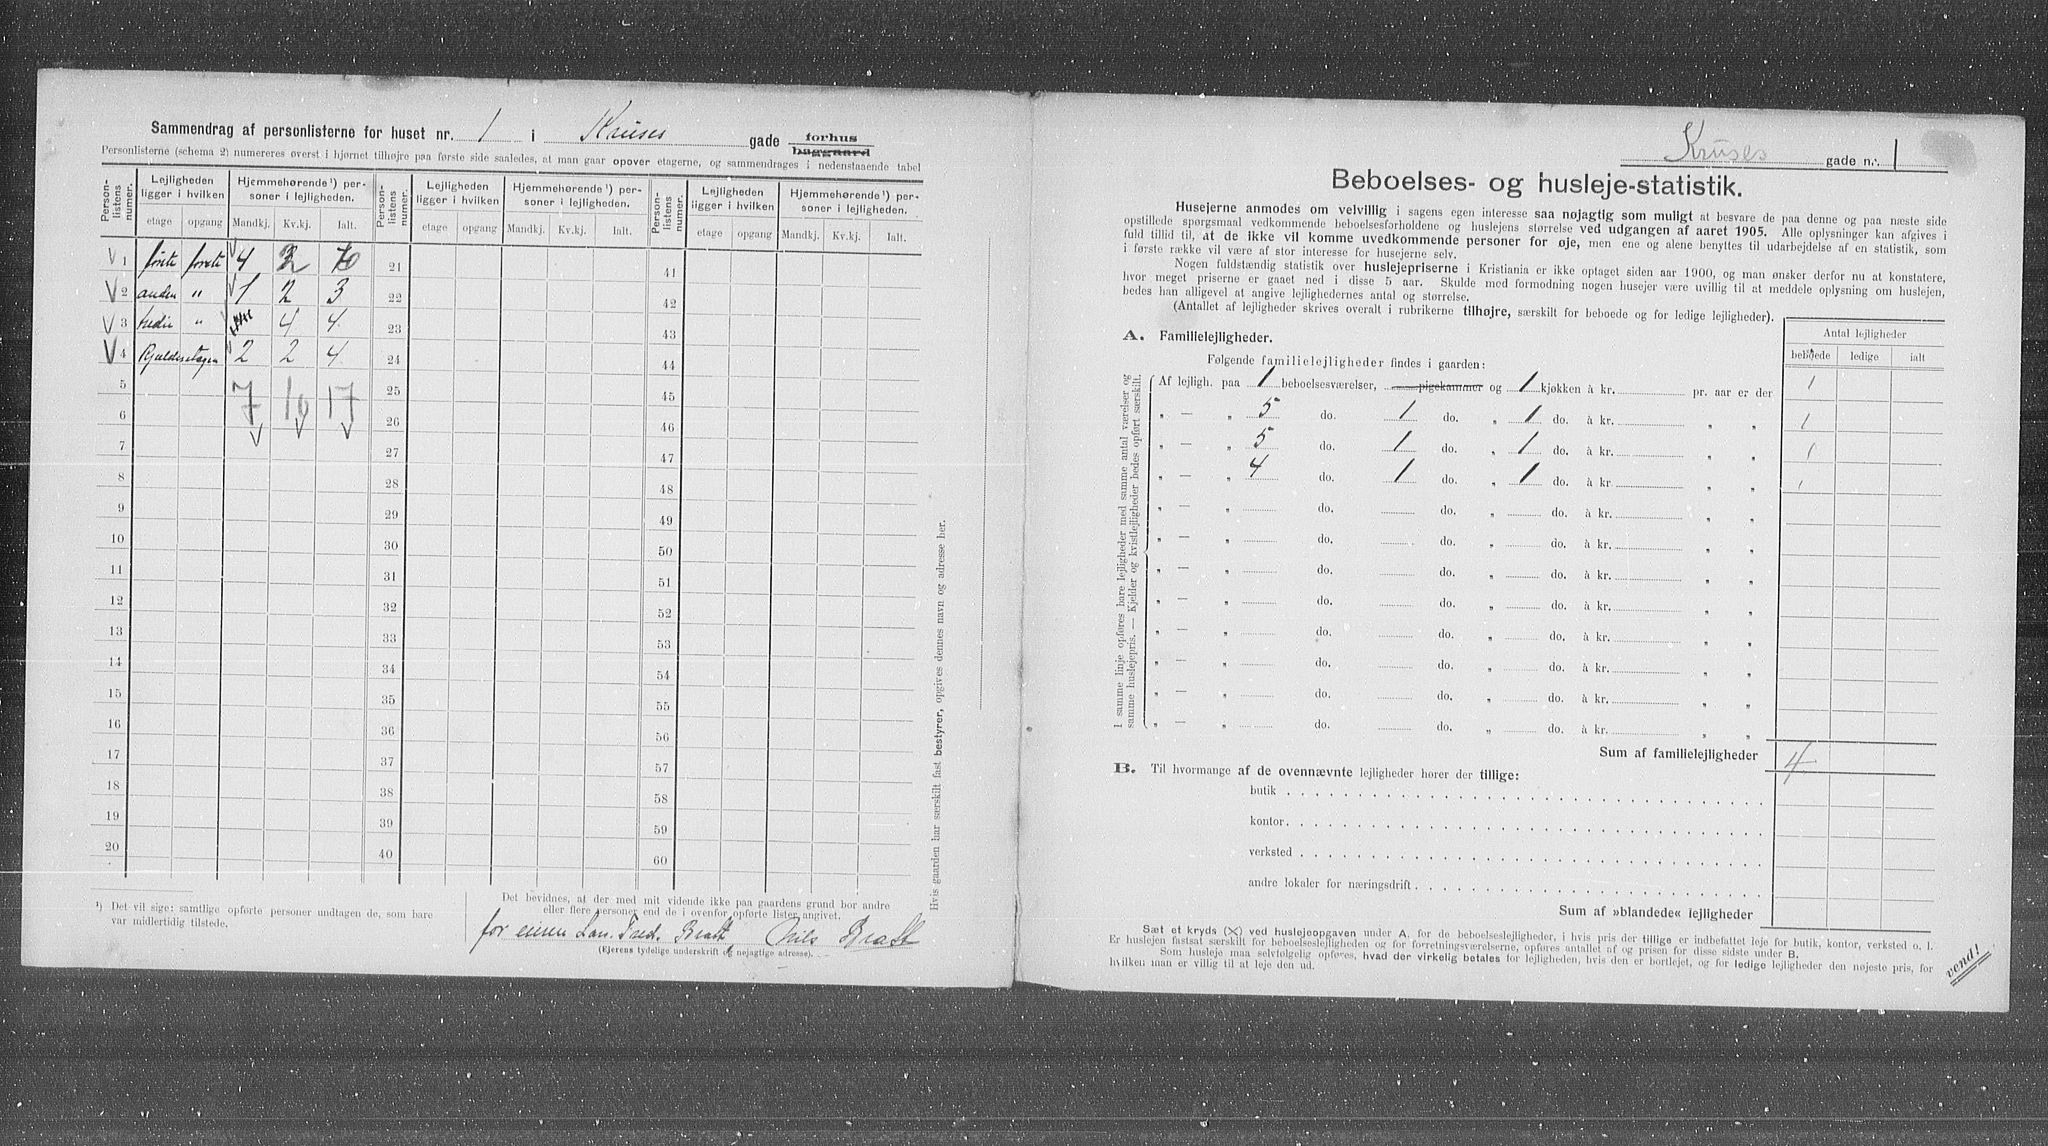 Sammendrag af personlisterne for huset nr. 1 i Kruses gade forhus baggaard
Personlisterne (schema 2) numereres øverst i hjørnet tilhøjre paa første side saaledes, at man gaar opover etagerne, og sammendrages i nedenstaaende tabel
Person-listens numer. Lejligheden ligger i hvilken Hjemmehørende¹) personer i lejligheden. Person-listens numer. Lejligheden ligger i hvilken Hjemmehørende¹) personer i lejligheden. Person-listens numer. Lejligheden ligger i hvilken Hjemmehørende¹) personer i lejligheden.
etage opgang Mandkj. Kv.kj. Ialt. etage opgang Mandkj. Kv.kj. Ialt. etage opgang Mandkj. Kv.kj. Ialt.
V 1 første første 4 2 6 21 41
V 2 anden " 1 2 3 22 42
V 3 tredie " 4 4 23 43
V 4 Kjælderetagen 2 2 4 24 44
5 7 10 17 25 45
6 26 46
7 27 47
8 28 48
9 29 49
10 30 50
11 31 51
12 32 52
13 33 53
14 34 54
15 35 55
16 36 56
17 37 57
18 38 58
19 39 59
20 40 60
¹) Det vil sige: samtlige opførte personer undtagen de, som bare
var midlertidig tilstede.
Det bevidnes, at der med mit vidende ikke paa gaardens grund bor andre
eller flere personer end de i ovenfor opførte lister angivet.
for eieren Fred. Bratt, Nils Bratt
(Ejerens tydelige underskrift og nøjagtige adresse).
Hvis gaarden har særskilt fast bestyrer, opgives dennes navn og adresse her.
Kruses gade nr. 1
Beboelses- og husleje-statistik.
Husejerne anmodes om velvillig i sagens egen interesse saa nøjagtig som muligt at besvare de paa denne og paa næste side
opstillede spørgsmaal vedkommende beboelsesforholdene og huslejens størrelse ved udgangen af aaret 1905. Alle oplysninger kan afgives i
fuld tillid til, at de ikke vil komme uvedkommende personer for øje, men ene og alene benyttes til udarbejdelse af en statistik, som
i første række vil være af stor interesse for husejerne selv.
Nogen fuldstændig statistik over huslejepriserne i Kristiania er ikke optaget siden aar 1900, og man ønsker derfor nu at konstatere,
hvor meget priserne er gaaet ned i disse 5 aar. Skulde mod formodning nogen husejer være uvillig til at meddele oplysning om huslejen,
bedes han alligevel at angive lejlighedernes antal og størrelse.
(Antallet af lejligheder skrives overalt i rubrikerne tilhøjre, særskilt for beboede og for ledige lejligheder).
Antal lejligheder
beboede ledige ialt
A. Familielejligheder.
Følgende familielejligheder findes i gaarden:
I samme linje opføres bare lejligheder med samme antal værelser og
samme huslejepris. — Kjelder og kvistlejligheder bedes opført særskilt.
Af lejligh. paa 1 beboelsesværelser, pigekammer og 1 kjøkken à kr. pr. aar er der 1
„ — „ 5 do. 1 do. „ 1 do. à kr. „ „ 1
„ — „ 5 do. 1 do. „ 1 do. à kr. „ „ 1
„ — „ 4 do. 1 do. „ 1 do. à kr. „ „ 1
„ — „ do. do. „ do. à kr. „ „
„ — „ do. do. „ do. à kr. „ „
„ — „ do. do. „ do. à kr. „ „
„ — „ do. do. „ do. à kr. „ „
„ — „ do. do. „ do. à kr. „ „
„ — „ do. do. „ do. à kr. „ „
„ — „ do. do. „ do. à kr. „ „
„ — „ do. do. „ do. à kr. „ „
Sum af familielejligheder 4
B. Til hvormange af de ovennævnte lejligheder hører der tillige:
butik
kontor
verksted
andre lokaler for næringsdrift
Sum af »blandede« lejligheder
Sæt et kryds (X) ved huslejeopgaven under A, for de beboelseslejligheder, i hvis pris der tillige er indbefattet leje for butik, kontor, verksted o. l.
Er huslejen fastsat særskilt for beboelseslejligheden og for forretningsværelserne, opføres antallet af og prisen for disse sidste under B.
Som husleje maa selvfølgelig opføres, hvad der virkelig betales for lejligheden, hvis den er bortlejet, og for ledige lejligheder den nøjeste pris, for
hvilken man er villig til at leje den ud.
vend!